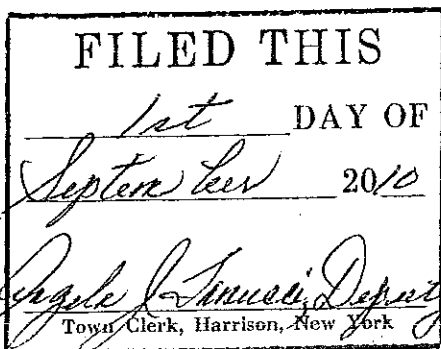 FILED THIS
1st DAY OF
September 2010
Angela J. Deputy
Town Clerk, Harrison, New York